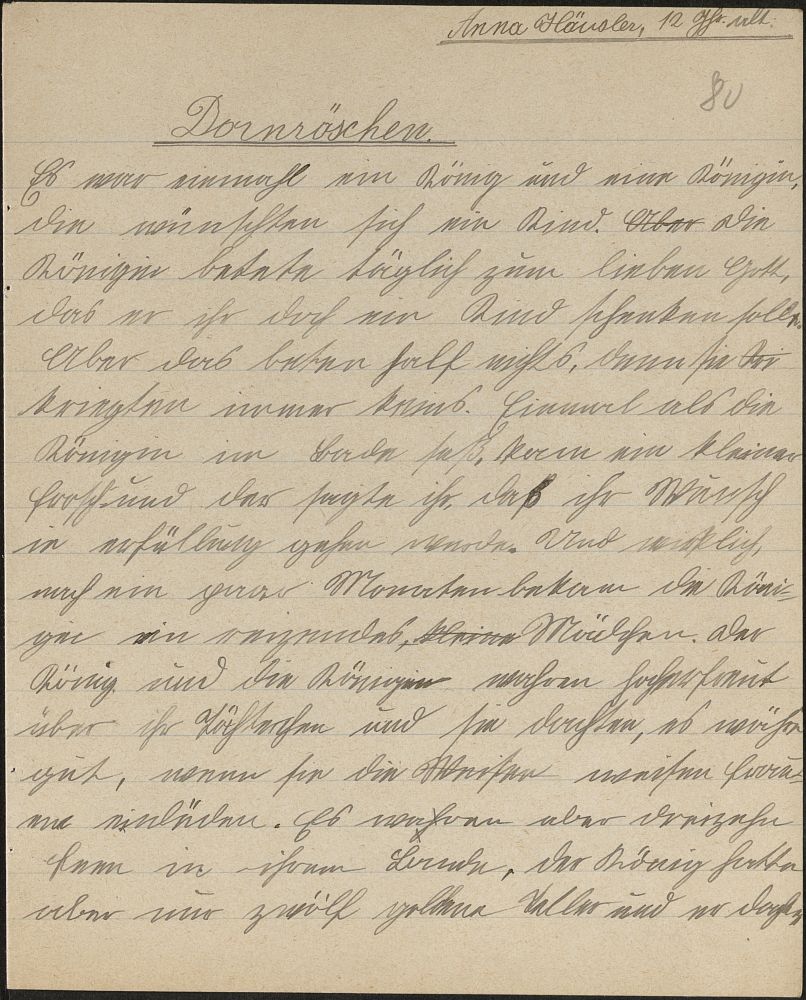 Anna Häusler, 12 Jhr. alt.
80
Dornröschen.
Es war einmahl ein König und eine Königin,
die wünschten sich ein Kind. Aber die
Königin betete täglich zum lieben Gott,
das er ihr doch ein Kind schenken solle.
Aber das beten half nichts, denn sie
kriegten immer keins. Einmal als die
Königin im Bade saß, kam ein kleiner
Frosch und der sagte ihr, daß ihr Wunsch
in erfüllung gehen werde. Und wirklich,
nach ein paar Monaten bekam die Köni-
gin ein reizendes, kleine Mädchen. Der
König und die Königin wahren hocherfreut
über ihr Töchterchen und sie dachten, es währe
gut, wenn sie die Weisen weisen Frau-
en einlüden. Es wahren aber dreizehn
Feen in ihrem Lande, der König hatte
aber nur zwölf goldene Teller und er dachte,